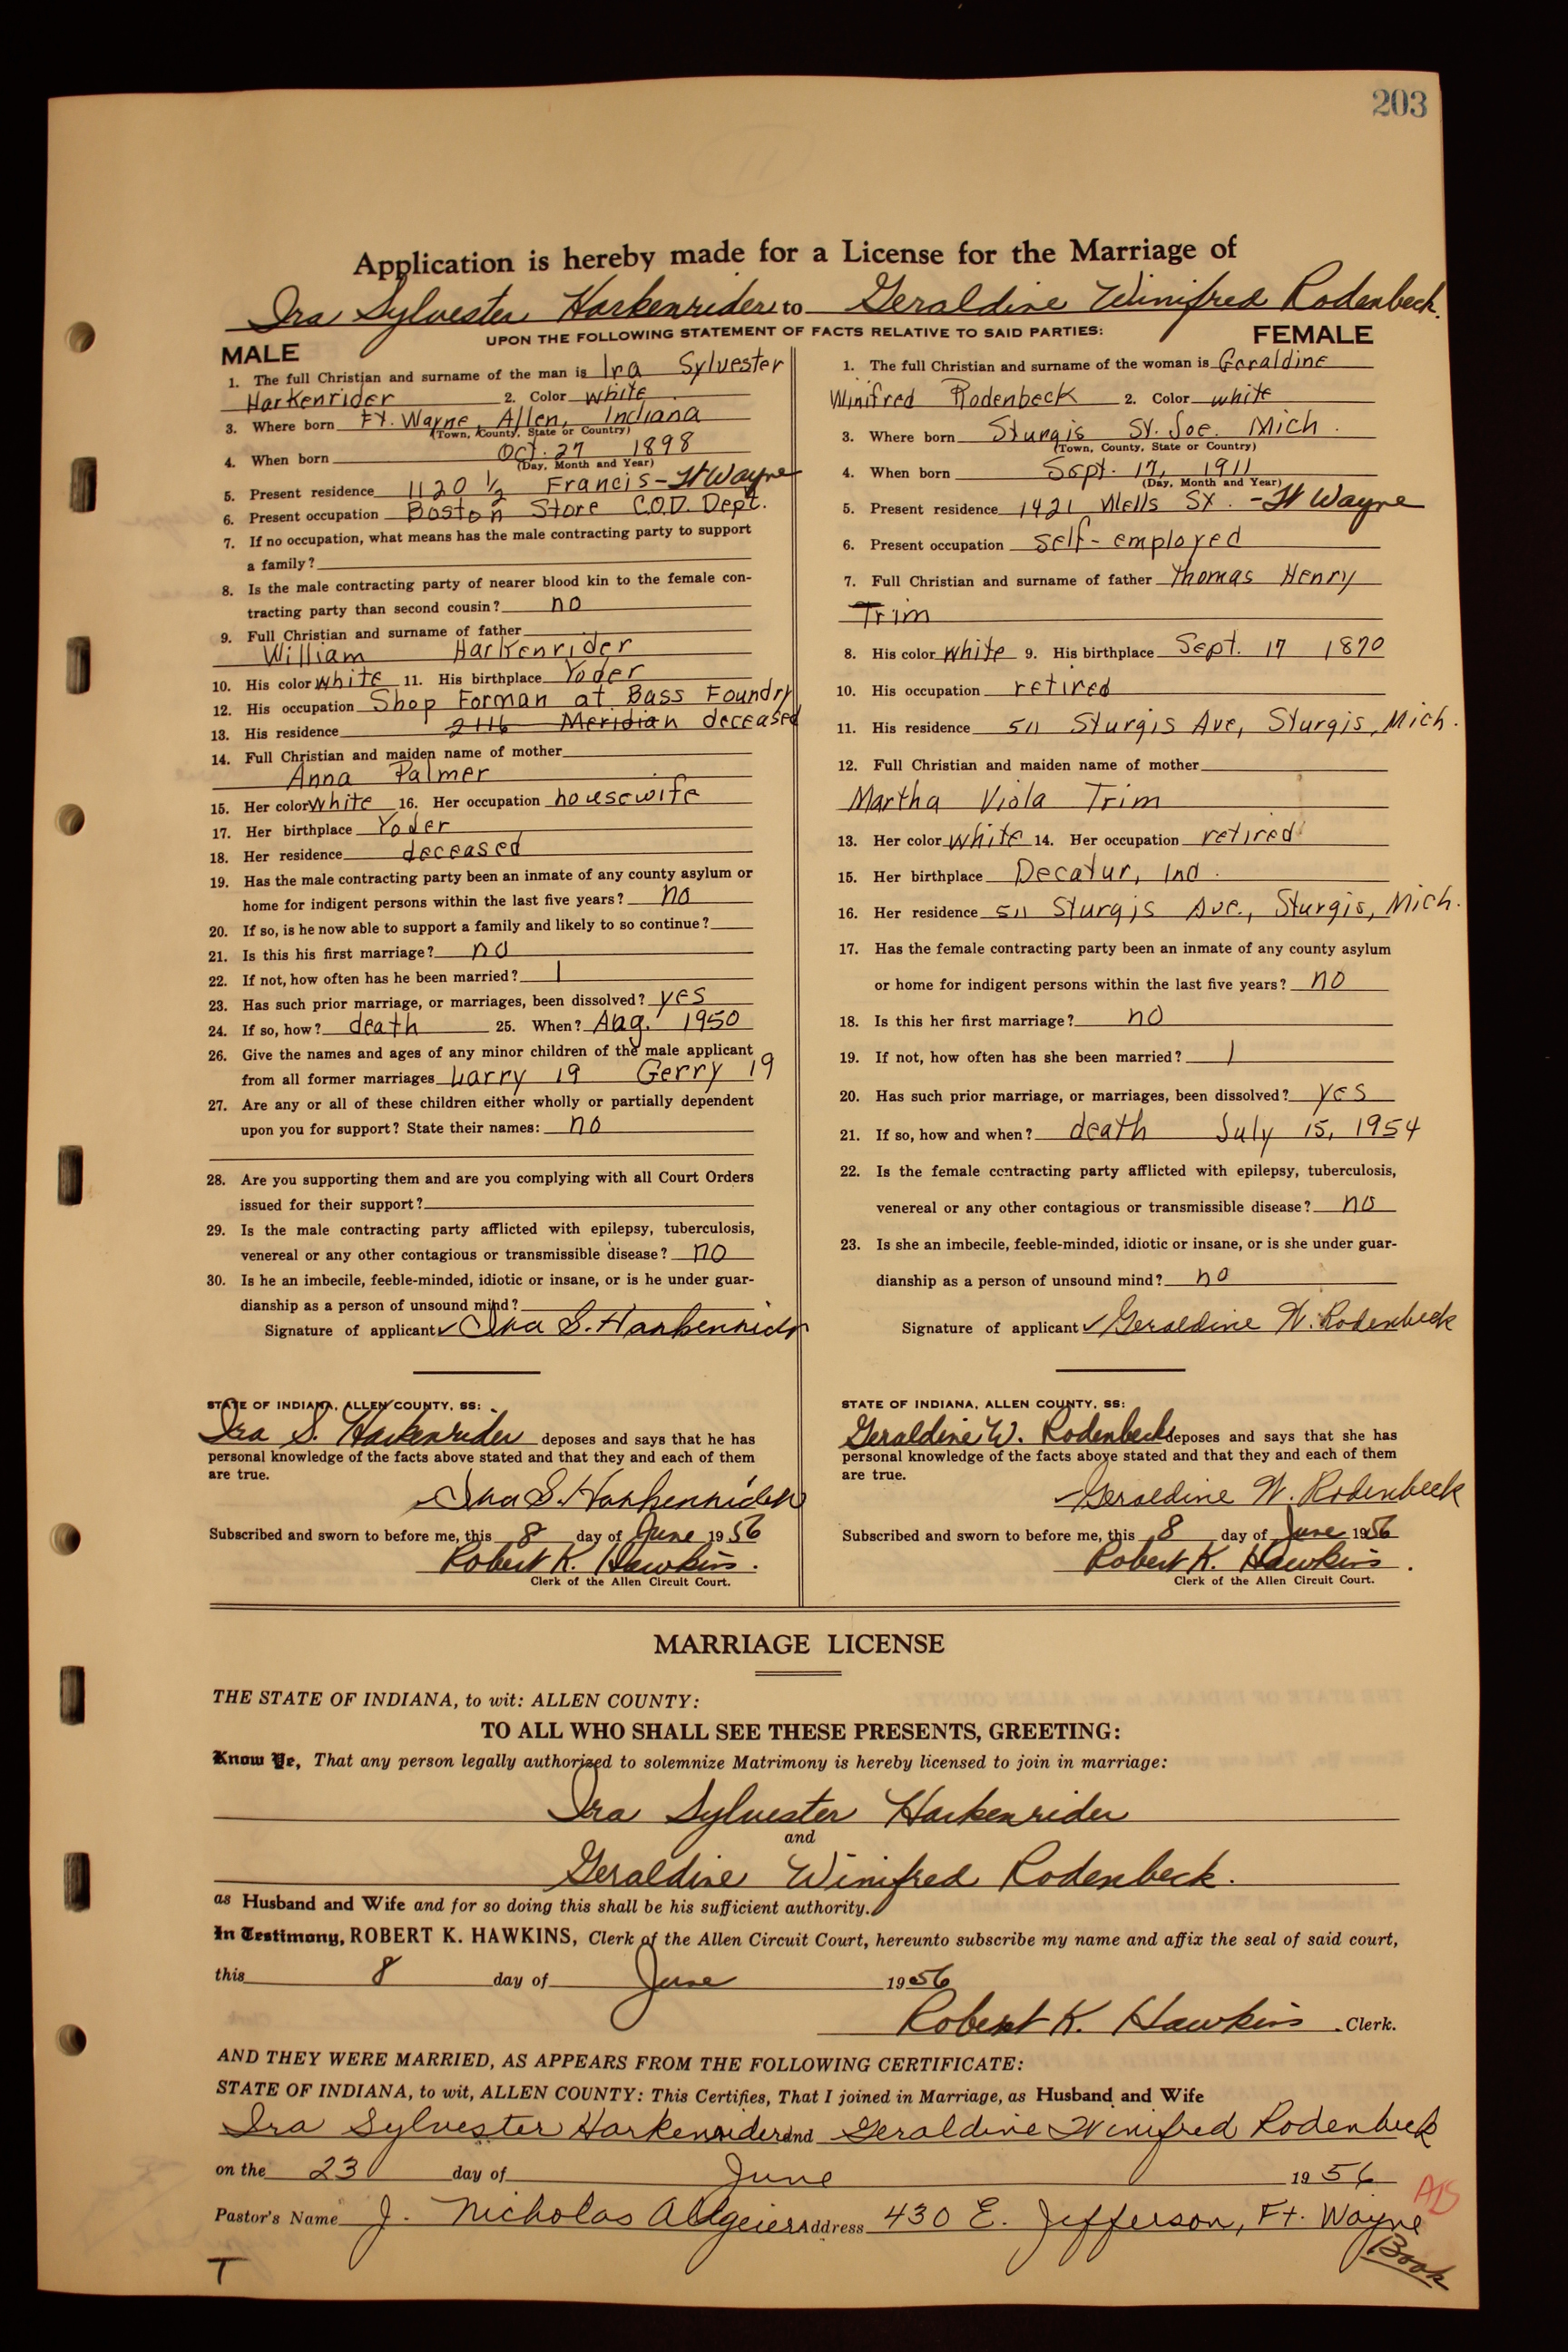 203
Application is hereby made for a License for the Marriage of
Ira Sylvester Harkenrider to Geraldine Winifred Rodenbeck.
UPON THE FOLLOWING STATEMENT OF FACTS RELATIVE TO SAID PARTIES:
MALE
1. The full Christian and surname of the man is Ira Sylvester
Harkenrider 2. Color white
3. Where born Ft. Wayne, Allen, Indiana
(Town, County, State or Country)
4. When born Oct. 27 1898
(Day, Month and Year)
5. Present residence 1120 1/2 Francis - Ft Wayne
6. Present occupation Boston Store C.O.D. Dept.
7. If no occupation, what means has the male contracting party to support
a family?
8. Is the male contracting party of nearer blood kin to the female con-
tracting party than second cousin? no
9. Full Christian and surname of father
William Harkenrider
10. His color white 11. His birthplace Yoder
12. His occupation Shop Forman at Bass Foundry
13. His residence 2116 Meridian deceased
14. Full Christian and maiden name of mother
Anna Palmer
15. Her color white 16. Her occupation housewife
17. Her birthplace Yoder
18. Her residence deceased
19. Has the male contracting party been an inmate of any county asylum or
home for indigent persons within the last five years? no
20. If so, is he now able to support a family and likely to so continue?
21. Is this his first marriage? no
22. If not, how often has he been married? 1
23. Has such prior marriage, or marriages, been dissolved? yes
24. If so, how? death 25. When? Aug. 1950
26. Give the names and ages of any minor children of the male applicant
from all former marriages Larry 19 Gerry 19
27. Are any or all of these children either wholly or partially dependent
upon you for support? State their names: no
28. Are you supporting them and are you complying with all Court Orders
issued for their support?
29. Is the male contracting party afflicted with epilepsy, tuberculosis,
venereal or any other contagious or transmissible disease? no
30. Is he an imbecile, feeble-minded, idiotic or insane, or is he under guar-
dianship as a person of unsound mind?
Signature of applicant ✓ Ira S. Harkenrider
STATE OF INDIANA, ALLEN COUNTY, SS:
Ira S. Harkenrider deposes and says that he has
personal knowledge of the facts above stated and that they and each of them
are true.
Ira S. Harkenrider
Subscribed and sworn to before me, this 8 day of June 1956
Robert K. Hawkins.
Clerk of the Allen Circuit Court.
FEMALE
1. The full Christian and surname of the woman is Geraldine
Winifred Rodenbeck 2. Color white
3. Where born Sturgis St. Joe. Mich.
(Town, County, State or Country)
4. When born Sept. 17, 1911
(Day, Month and Year)
5. Present residence 1421 Wells St. - Ft Wayne
6. Present occupation self-employed
7. Full Christian and surname of father Thomas Henry
Trim
8. His color white 9. His birthplace Sept. 17 1870
10. His occupation retired
11. His residence 511 Sturgis Ave, Sturgis, Mich.
12. Full Christian and maiden name of mother
Martha Viola Trim
13. Her color white 14. Her occupation retired
15. Her birthplace Decatur, Ind.
16. Her residence 511 Sturgis Ave., Sturgis, Mich.
17. Has the female contracting party been an inmate of any county asylum
or home for indigent persons within the last five years? no
18. Is this her first marriage? no
19. If not, how often has she been married? 1
20. Has such prior marriage, or marriages, been dissolved? yes
21. If so, how and when? death July 15, 1954
22. Is the female contracting party afflicted with epilepsy, tuberculosis,
venereal or any other contagious or transmissible disease? no
23. Is she an imbecile, feeble-minded, idiotic or insane, or is she under guar-
dianship as a person of unsound mind? no
Signature of applicant ✓ Geraldine W. Rodenbeck
STATE OF INDIANA, ALLEN COUNTY, SS:
Geraldine W. Rodenbeck deposes and says that she has
personal knowledge of the facts above stated and that they and each of them
are true.
✓ Geraldine W. Rodenbeck
Subscribed and sworn to before me, this 8 day of June 1956
Robert K. Hawkins.
Clerk of the Allen Circuit Court.
MARRIAGE LICENSE
THE STATE OF INDIANA, to wit: ALLEN COUNTY:
TO ALL WHO SHALL SEE THESE PRESENTS, GREETING:
Know Ye, That any person legally authorized to solemnize Matrimony is hereby licensed to join in marriage:
Ira Sylvester Harkenrider
and
Geraldine Winifred Rodenbeck.
as Husband and Wife and for so doing this shall be his sufficient authority.
In Testimony, ROBERT K. HAWKINS, Clerk of the Allen Circuit Court, hereunto subscribe my name and affix the seal of said court,
this 8 day of June 1956
Robert K. Hawkins. Clerk.
AND THEY WERE MARRIED, AS APPEARS FROM THE FOLLOWING CERTIFICATE:
STATE OF INDIANA, to wit, ALLEN COUNTY: This Certifies, That I joined in Marriage, as Husband and Wife
Ira Sylvester Harkenrider and Geraldine Winifred Rodenbeck
on the 23 day of June 1956
Pastor's Name J. Nicholas Allgeier Address 430 E. Jefferson, Ft. Wayne
Book
T